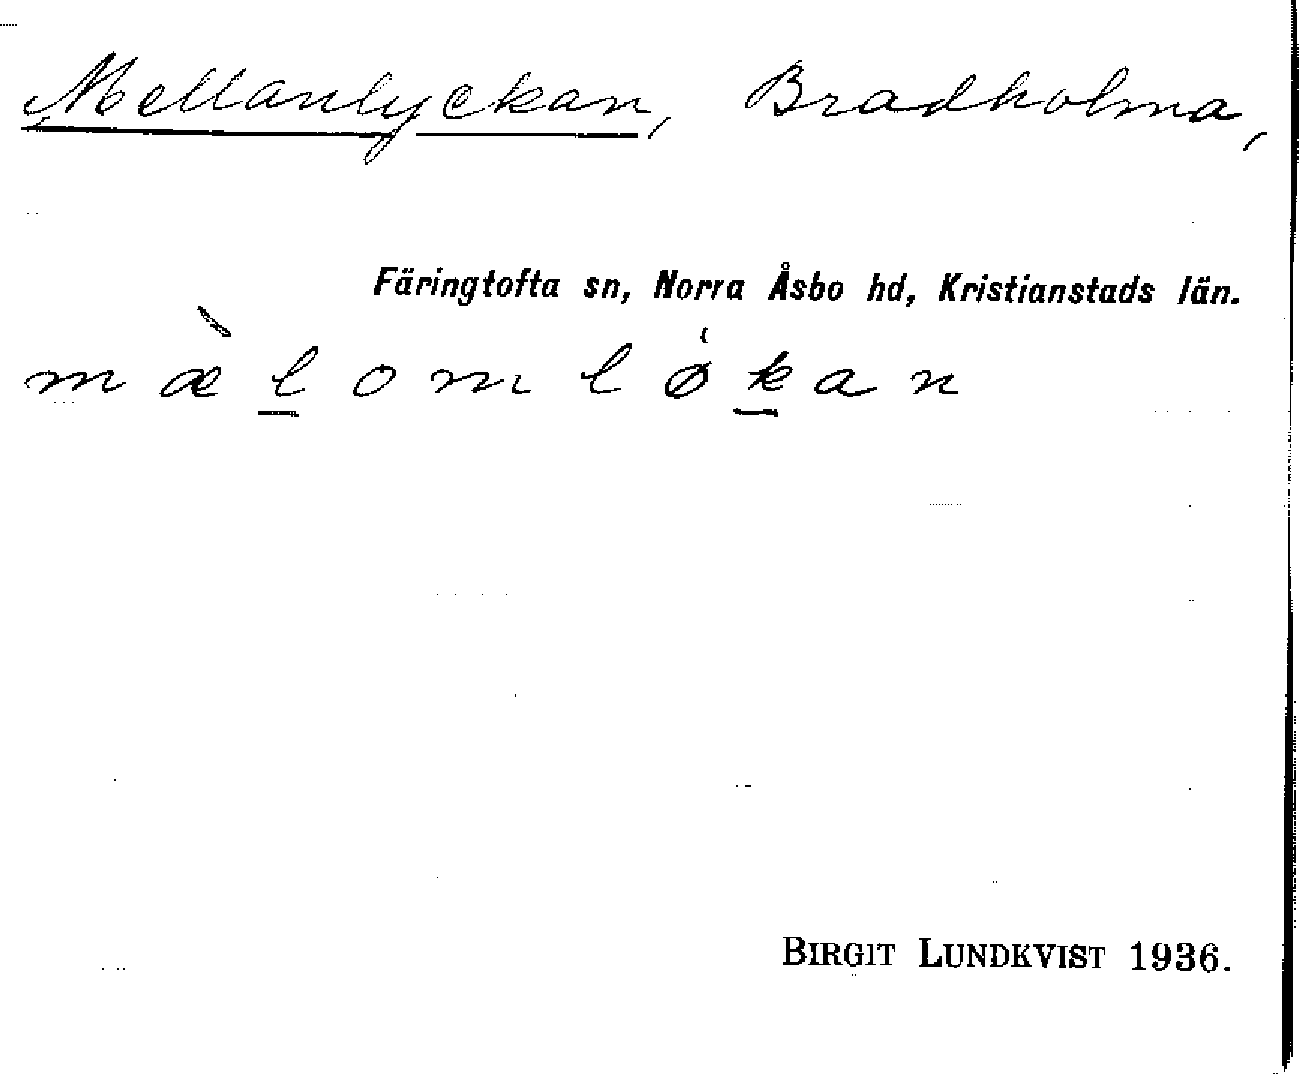 Mellanlyckan, Bradholma,
Färingtofta sn, Norra Åsbo hd, Kristianstads län.
mæ̀l̲omløk̲an
BIRGIT LUNDKVIST 1936.